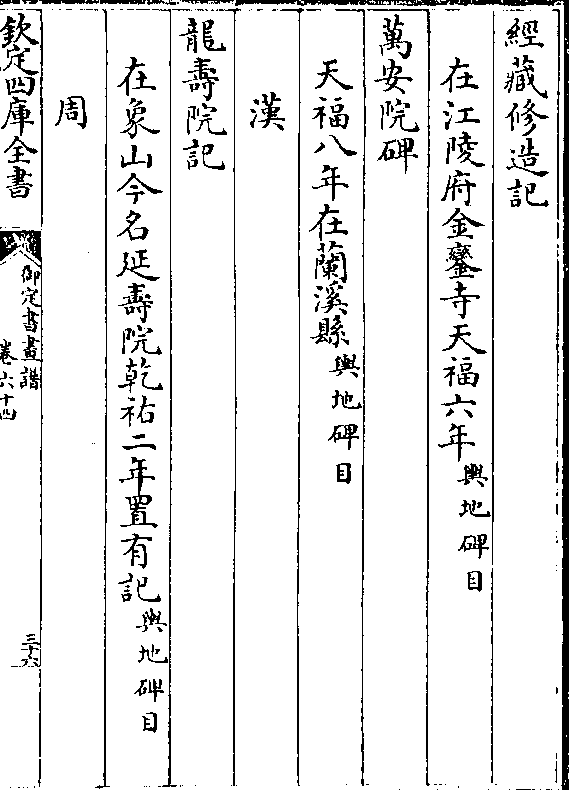 經藏修造記
在江陵府金鑾寺天福六年輿地碑目
萬安院碑
天福八年在蘭溪縣輿地碑目
漢
龍壽院記
在象山今名延壽院乾祐二年置有記輿地碑目
周
欽定四庫全書
御定書畫譜
卷六十四
三十六